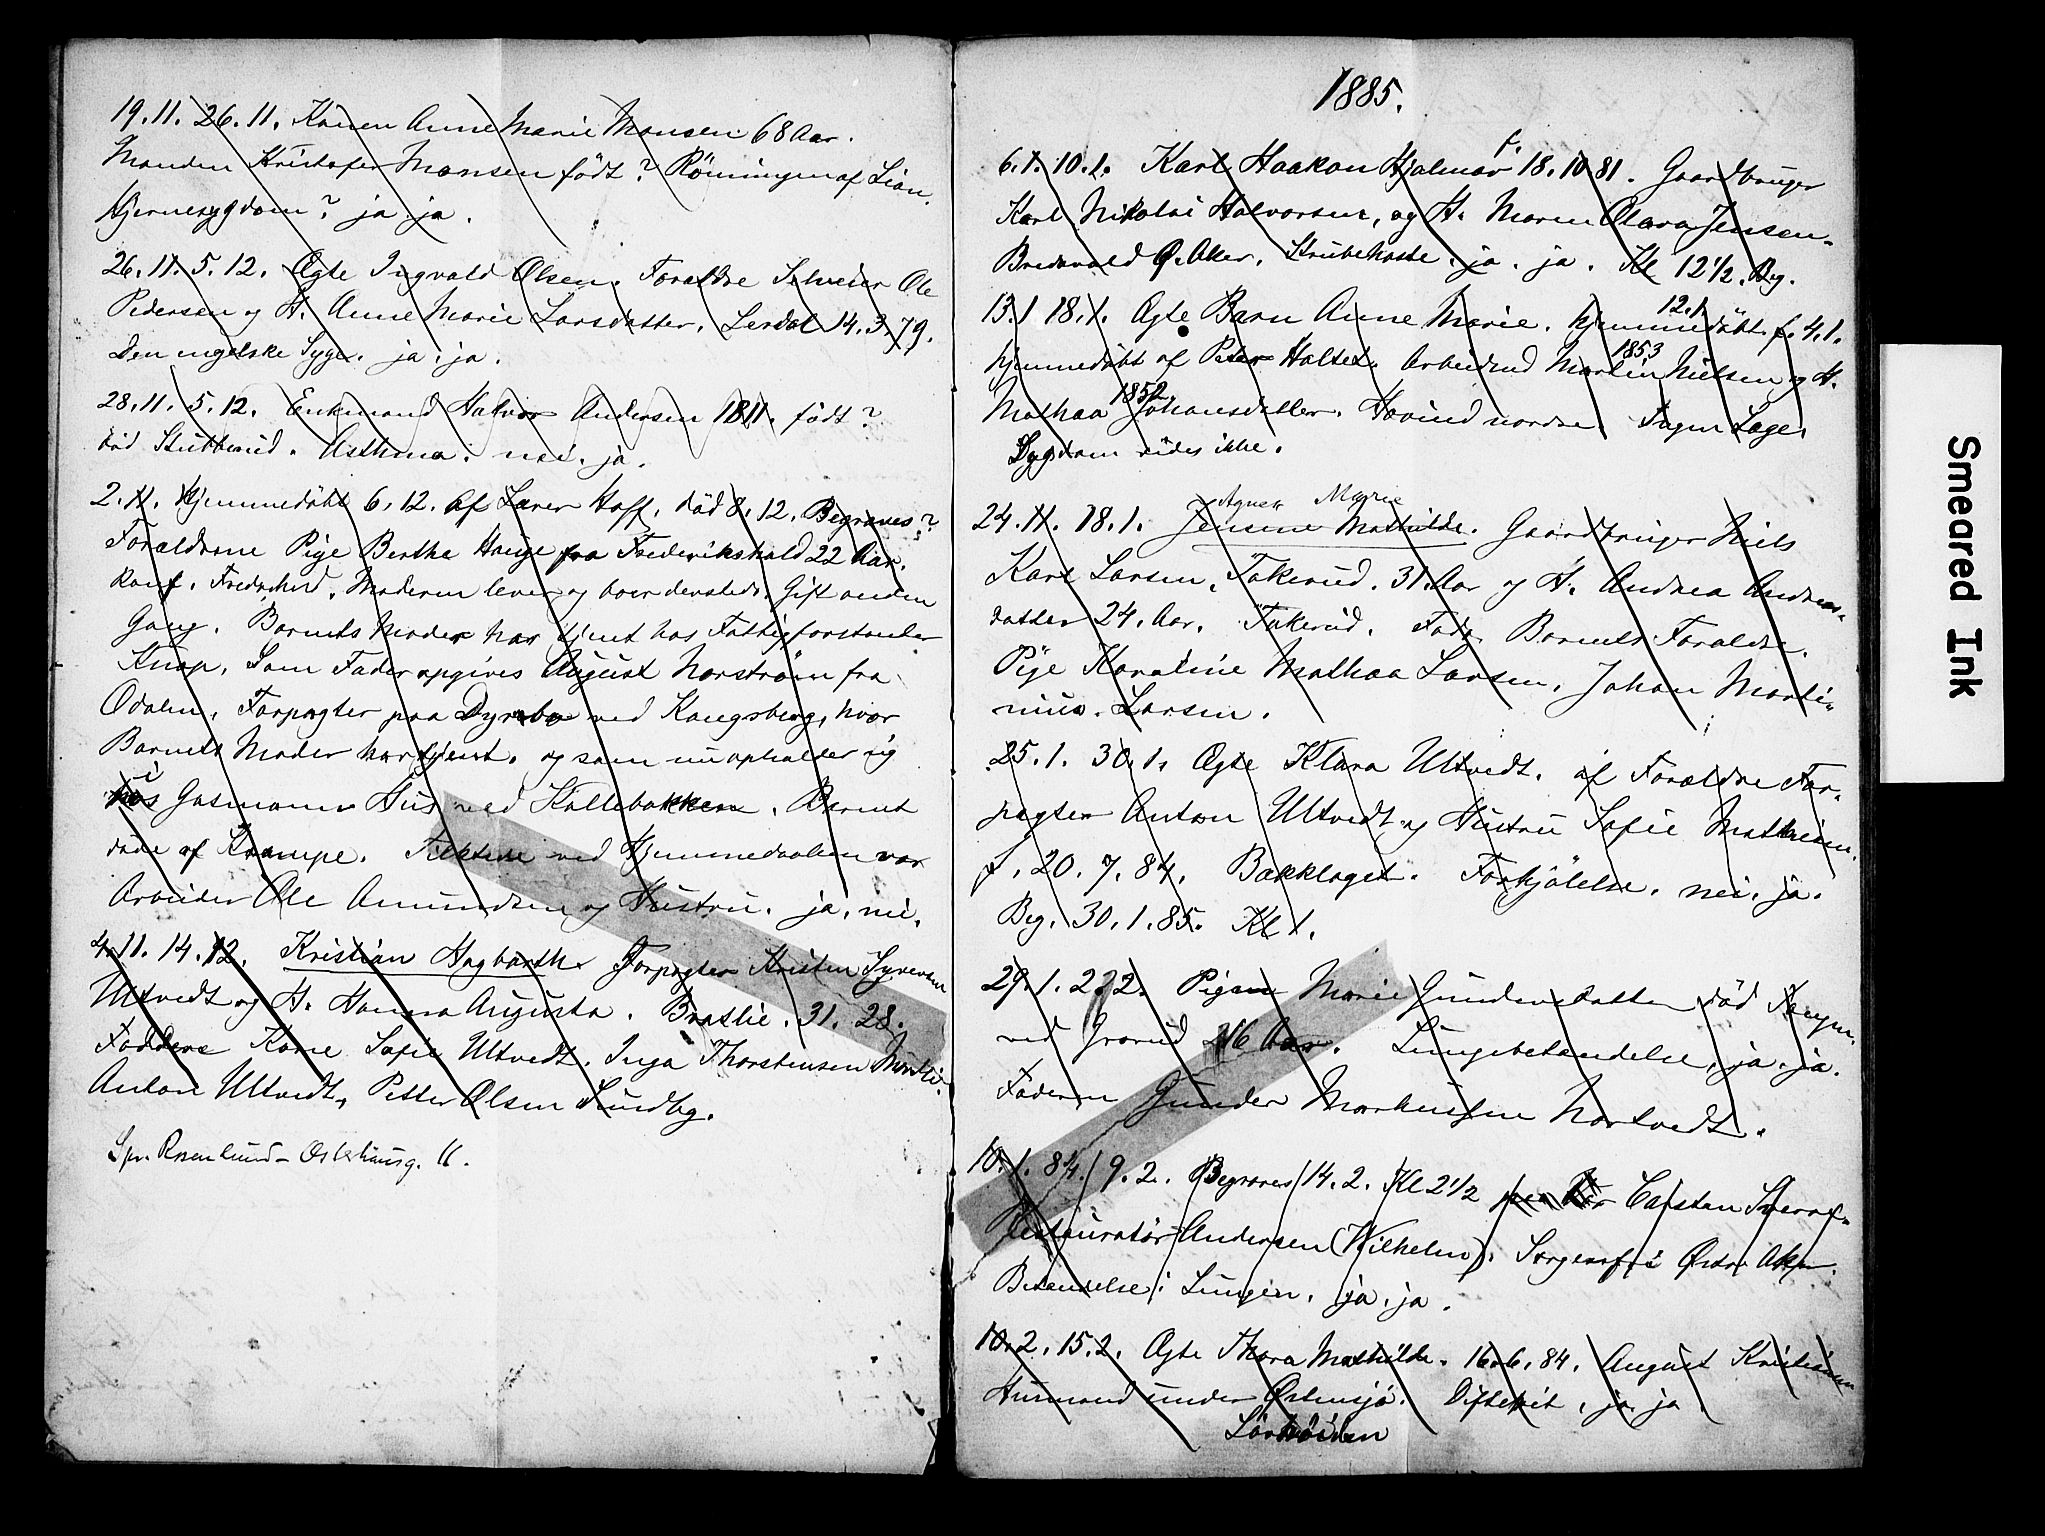 19.11. 26.11. Konen Anne Marie Monsen 68 Aar.
Manden Kristofer Monsen födt? Röningen af Lian.
Hjernesygdom? ja ja.
26.11. 5.12. Ægte Ingvald Olsen. Forældre Selveier Ole
Pedersen og H. Anne Marie Larsdatter. Lerdal 14.3.79.
Den engelske Syge. ja. ja.
28.11. 5.12. Enkemand Halvor Andersen 1811. födt?
död Stubberud. Asthma. nei. ja.
2.11. Hjemmedöbt 6.12. af Lærer Hoff. död 8.12. Begraves?
Forældrene Pige Berthe Hauge fra Frederikshald 22 Aar.
Konf. Fredrshld. Moderen lever og boer dersteds. Gift anden
Gang. Barnets Moder har tjent hos Fattigforstander
Knap. Som Fader opgives August Norström fra
Odalen, Forpagter paa ved Kongsberg, hvor
Barnets Moder har tjent. og som nu opholder sig
i Gasmanns Hus ved Kallebakken. Barnet
döde af Krampe. Tilstede ved Hjemmedaaben var
Arbeider Ole Amundsen og Hustru. ja. nei.
4.11. 14.12. Kristian Hagbarth. Forpagter Kristen Syversen
Ultvedt og H. Hanna Augusta. Bratlie. 31. 28.
Faddere Kone Sofie Ultvedt. Inga Thorstensen
Anton Ultvedt, Petter Olsen Sundby.
Spr. Rosenlund - Osterhausg. 11.
1885.
f.
6.1. 10.1. Karl Haakon Hjalmar 18.10 81. Gaardbruger
Karl Nikolai Halvorsen, og H. Maren Olava Jensen.
Bredevold Ø. Aker. Strubehoste. ja. ja. Kl 12½. Beg.
12.1
13.1 18.1. Ægte Barn Anne Marie. hjemmedöbt f. 4.1.
1853
hjemmedöbt af Peter Haltet. Arbeidsmd Martin Nielsen og H.
1852
Mathea Johansdatter. Hovind nordre. Ingen Læge.
Sygdom vides ikke.
Agnes Marie
24.11. 18.1. Jensine Mathilde. Gaardbruger Niels
Karl Larsen. Fakerud. 31. Aar og H. Andrea Andreas-
datter 24. Aar. Fakerud. Fadr. Barnets Forældre.
Pige Karoline Mathea Larsen. Johan Marti-
nius. Larsen.
25.1. 30.1. Ægte Klara Ultvedt. af Forældre For-
pagter Anton Ultvedt og Hustru Sofie
f. 20.7.84. Bakklaget. Forkjölelse. nei. ja.
Beg. 30.1.85. Kl 1.
29.1. 2.2. Pigen Marie Gundersdatter död
ved Grorud 16 Aar. Lungebetændelse. ja. ja.
Faderen Gunder Markussen Nortvedt.
10.1. 84. 9.2. Begraves 14.2. Kl 2½ Carsten
Restauratör Andersen (Wilhelm). Sorgenfri Østre Aker.
Betændelse i Lungen. ja. ja.
10.2. 15.2. Ægte Thora Mathilde. 16.6.84. August Kristiansen
Husmand under Østensjö. Difterit. ja. ja.